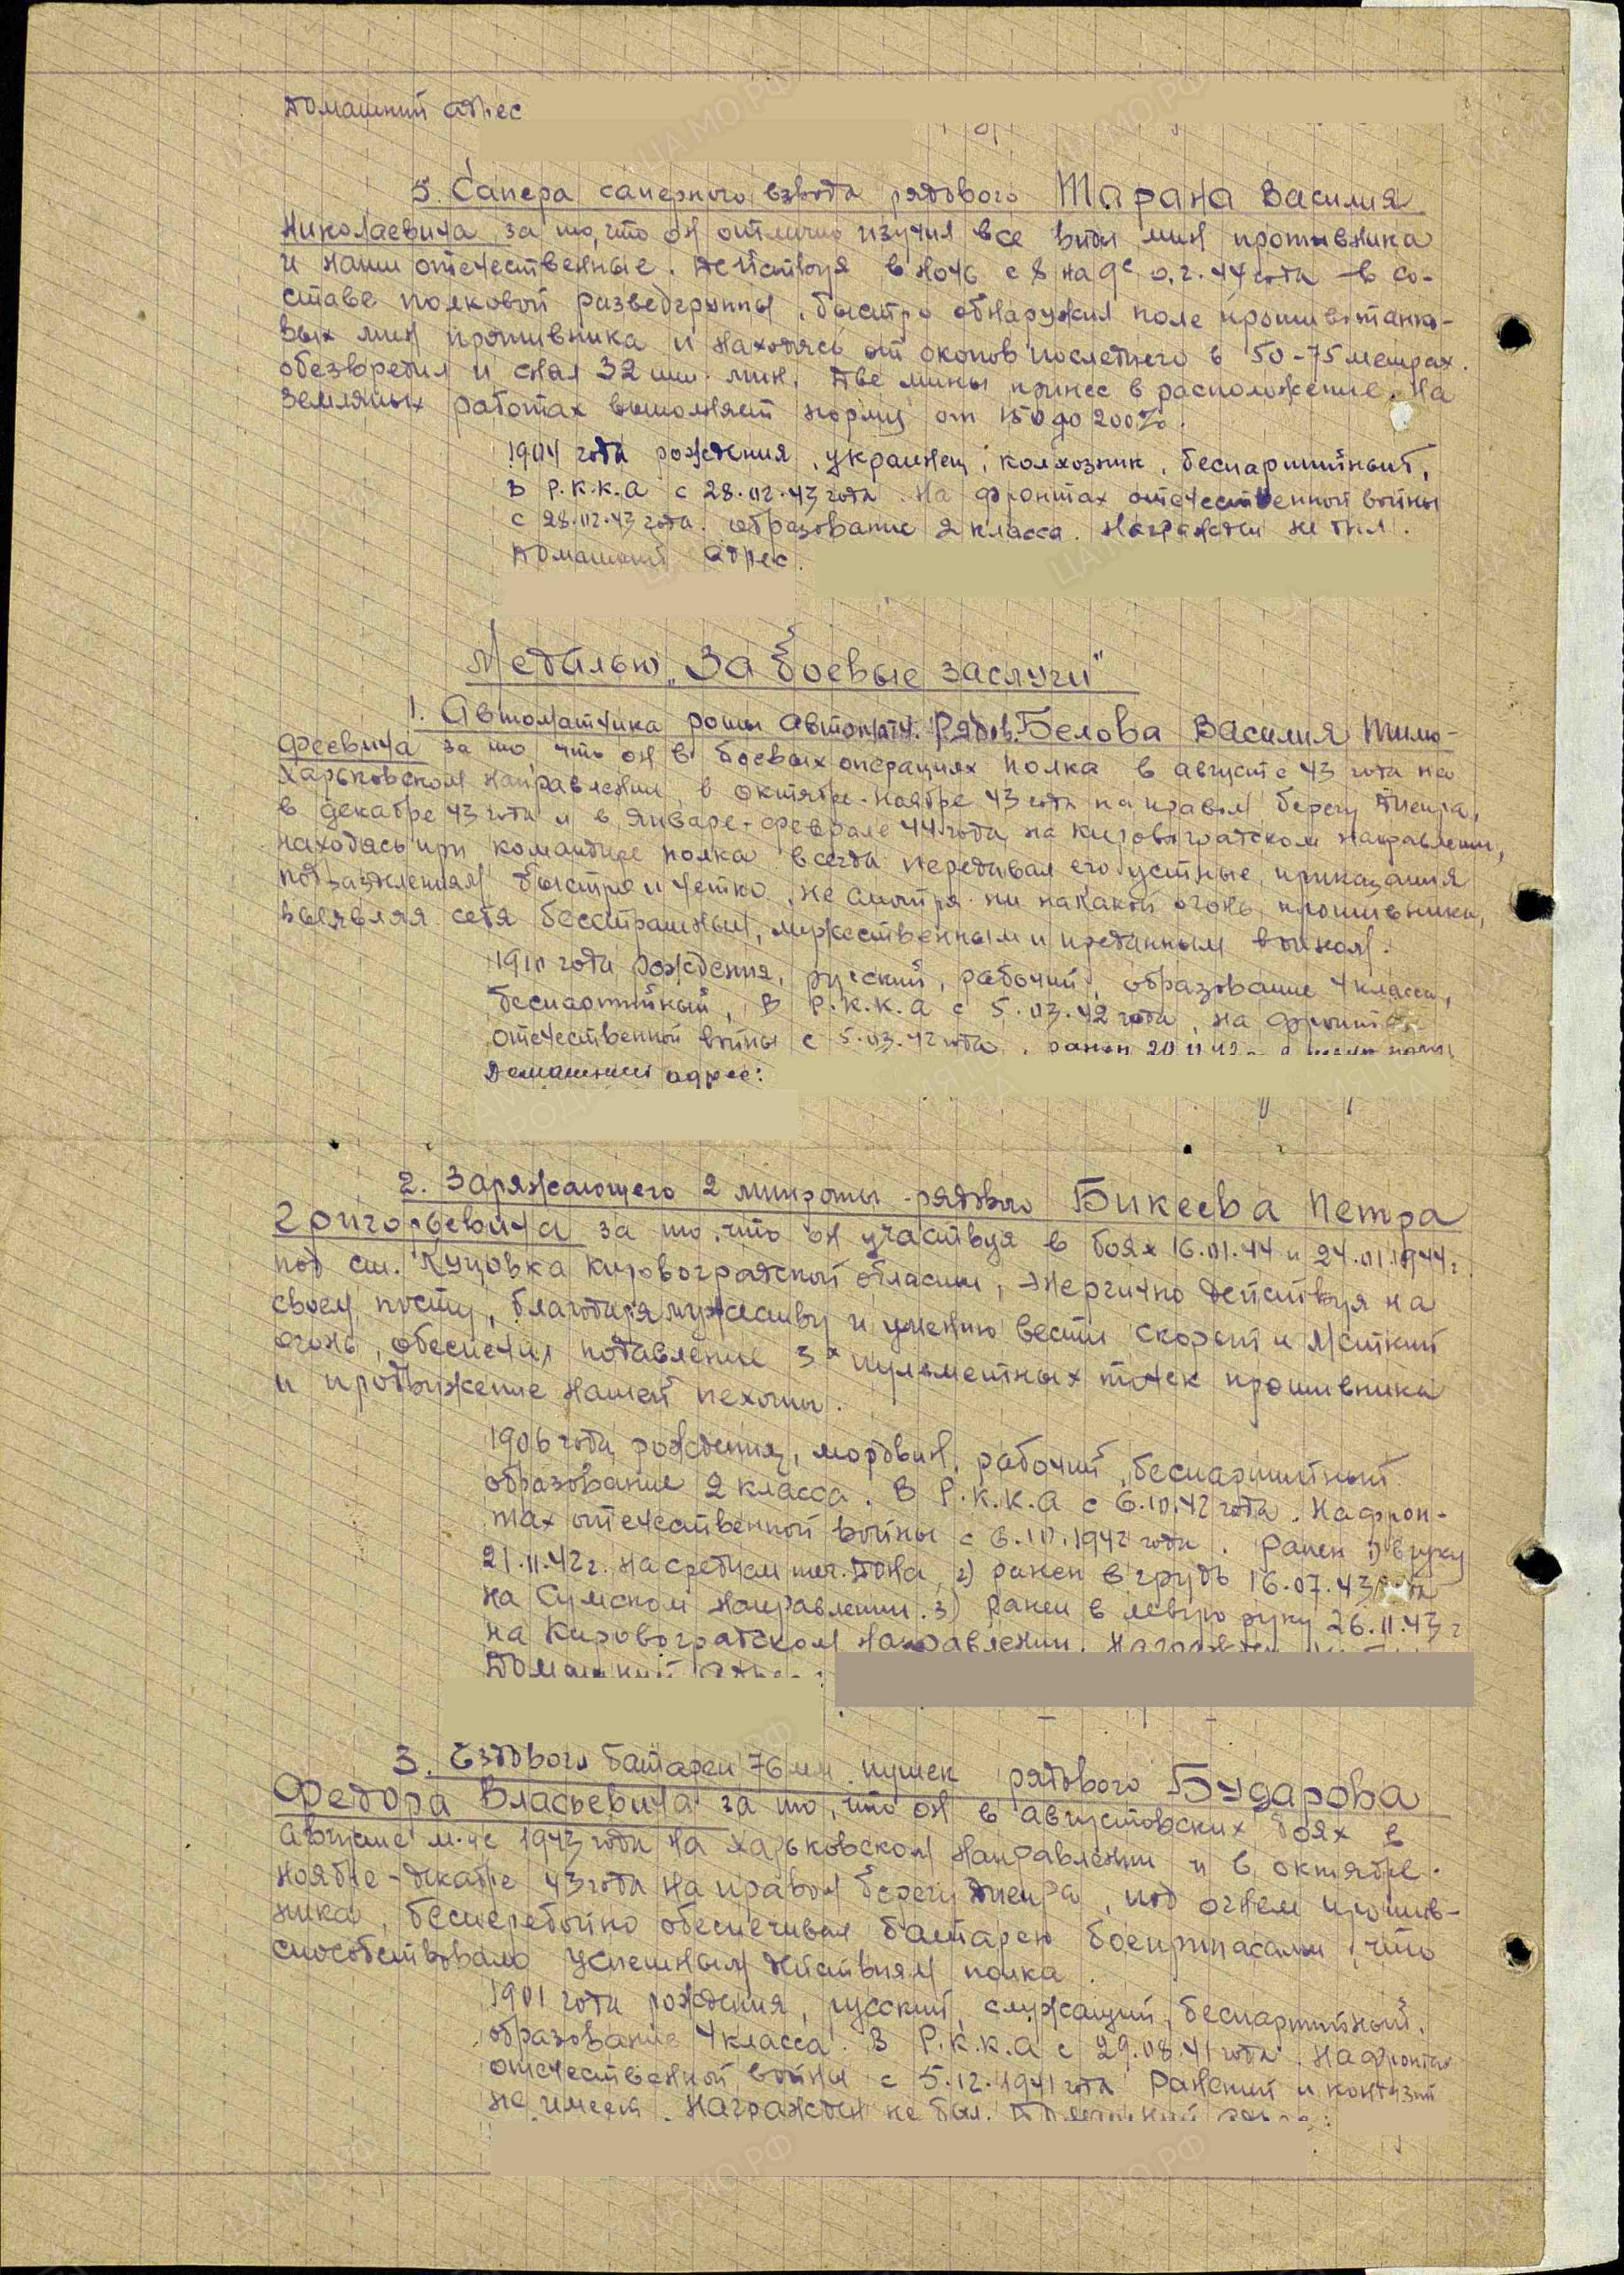 Домашний адрес
5. Сапера саперного взвода рядового Тарана Василия
Николаевича за то, что он отлично изучил все виды мин противника
и наши отечественные. Действуя в ночь с 8 на 9е 02.44 года в со-
ставе полковой разведгруппы, быстро обнаружил поле противотанко-
вых мин противника и находясь от окопов последнего в 50-75 метрах.
обезвредил и снял 32 шт. мин. Две мины принес в расположение. На
земляных работах выполняет норму от 150 до 200%.
1904 года рождения, украинец, колхозник, беспартийный,
В Р.К.К.А с 28.02.43 года. На фронтах отечественной войны
с 28.02.43 года. образование 2 класса. Награжден не был.
Домашний адрес.
Медалью „За боевые заслуги"
1. Автоматчика роты автоматч. рядов. Белова Василия Тимо-
феевича за то, что он в боевых операциях полка в августе 43 года на
Харьковском направлении, в октябре-ноябре 43 года на правом берегу Днепра,
в декабре 43 года и в январе-феврале 44 года на Кировоградском направлении,
находясь при командире полка всегда передавал его устные приказания
подразделениям быстро и четко, не смотря ни на какой огонь противника,
выявляя себя бесстрашным, мужественным и преданным воином.
1910 года рождения, русский, рабочий, образование 4 класса,
беспартийный, В Р.К.К.А с 5.03.42 года, на фронтах
отечественной войны с 5.03.42 года. ранен 20.11.42
Домашний адрес:
2. Заряжающего 2 минроты рядового Бикеева Петра
Григорьевича за то, что он участвуя в боях 16.01.44 и 24.01.1944г
под ст. Куцовка Кировоградской области, энергично действуя на
своем посту, благодаря мужеству и умению вести скорый и меткий
огонь, обеспечил подавление 3х пулеметных точек противника
и продвижение нашей пехоты.
1906 года рождения, мордвин, рабочий, беспартийный
образование 2 класса. В Р.К.К.А с 6.10.42 года. На фрон-
тах отечественной войны с 6.10.1942 года. Ранен 1) в руку
21.11.42г. на среднем теч. Дона, 2) ранен в грудь 16.07.43 года
на Сумском направлении. 3) Ранен в левую руку 26.11.43 г
на Кировоградском направлении. Награжден
Домашний адрес:
3. Ездового батареи 76 мм. пушек рядового Бударова
Федора Власьевича за то, что он в августовских боях в
августе м-це 1943 года на Харьковском направлении и в октябре-
ноябре-декабре 43 года на правом берегу Днепра, под огнем против-
ника, бесперебойно обеспечивал батарею боеприпасами, что
способствовало успешным действиям полка.
1901 года рождения, русский, служащий, беспартийный,
образование 4 класса. В Р.К.К.А с 29.08.41 года. На фронтах
отечественной войны с 5.12.1941 года Ранений и контузий
не имеет. Награжден не был. Домашний адрес: